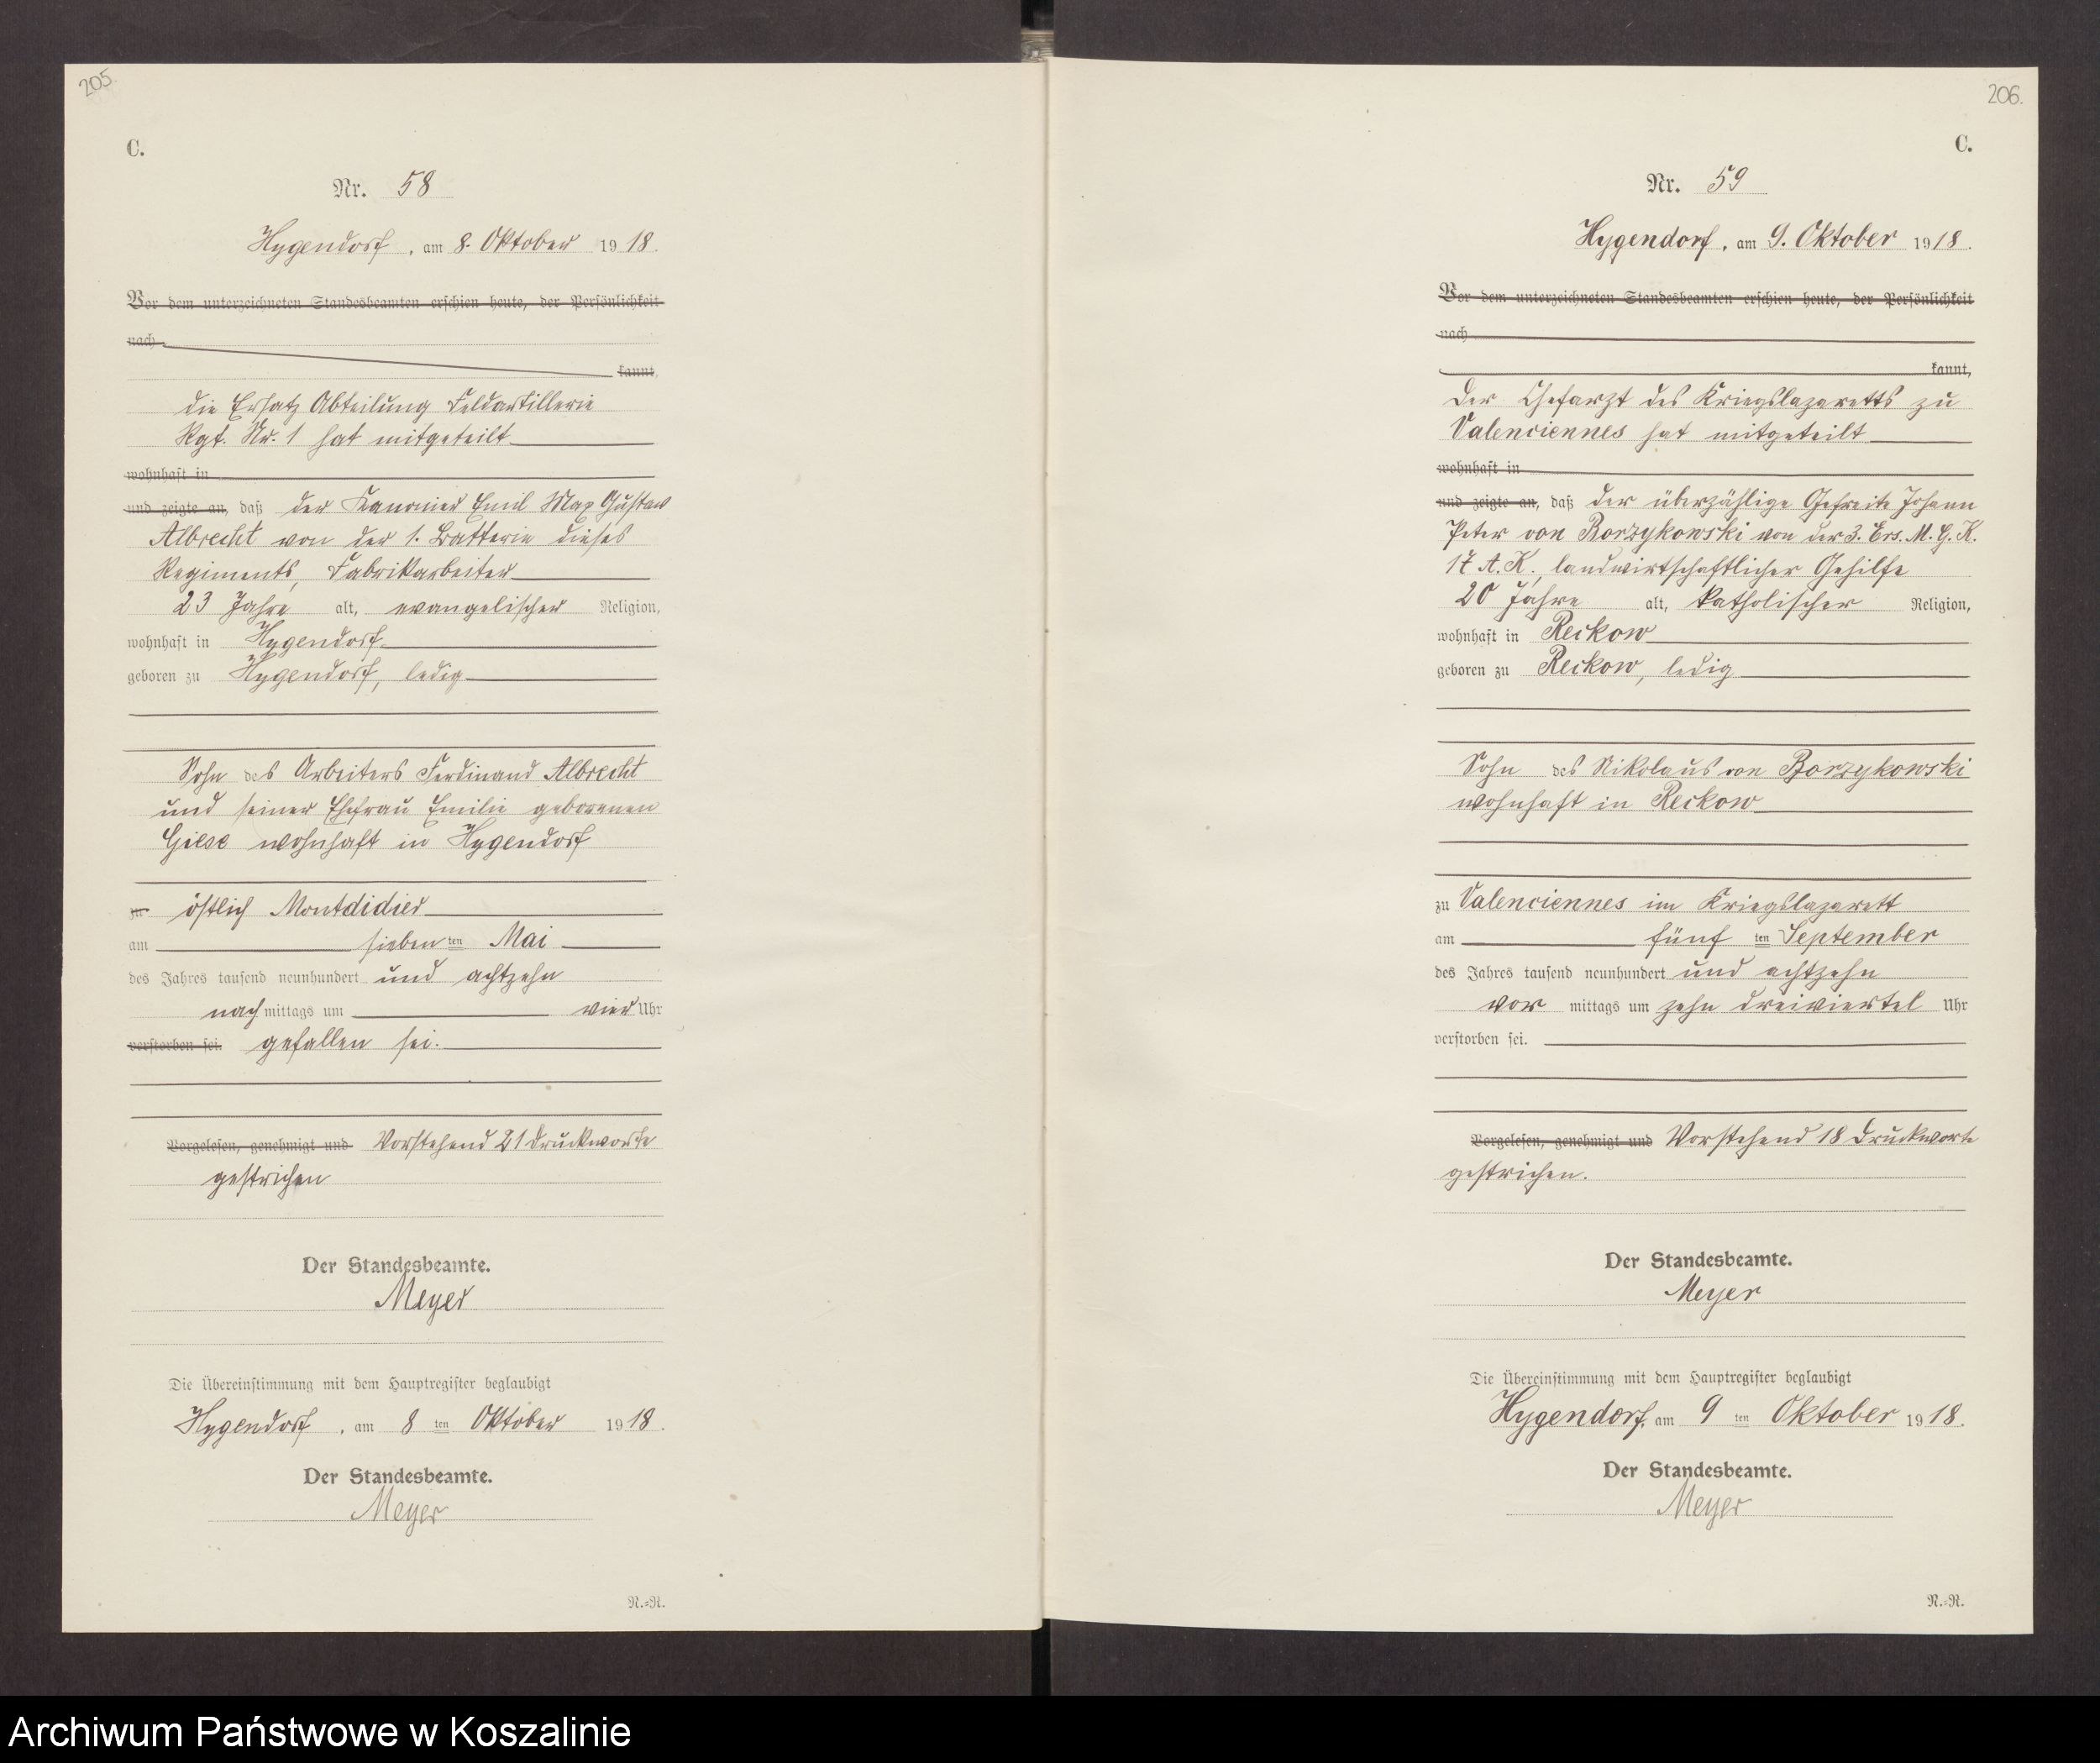 205.
C.
Nr. 58
Hygendorf, am 8. Oktober 1918.
Vor dem unterzeichneten Standesbeamten erschien heute, der Persönlichkeit
nach
kannt,
die Ersatz Abteilung Feldartillerie
Rgt. Nr. 1 hat mitgeteilt
wohnhaft in
und zeigte an, daß der Kanonier Emil Max Gustav
Albrecht von der 1. Batterie dieses
Regiments, Fabrikarbeiter
23 Jahre alt, evangelischer Religion,
wohnhaft in Hygendorf
geboren zu Hygendorf, ledig
Sohn des Arbeiters Ferdinand Albrecht
und seiner Ehefrau Emilie geborenen
Giese wohnhaft in Hygendorf
zu östlich Montdidier
am sieben ten Mai
des Jahres tausend neunhundert und achtzehn
nach mittags um vier Uhr
verstorben sei. gefallen sei.
Vorgelesen, genehmigt und Vorstehend 21 Druckworte
gestrichen
Der Standesbeamte.
Meyer
Die Übereinstimmung mit dem Hauptregister beglaubigt
Hygendorf, am 8 ten Oktober 1918.
Der Standesbeamte.
Meyer
N.=R.
206.
C.
Nr. 59
Hygendorf, am 9. Oktober 1918.
Vor dem unterzeichneten Standesbeamten erschien heute, der Persönlichkeit
nach
kannt,
Der Chefarzt des Kriegslazaretts zu
Valenciennes hat mitgeteilt
wohnhaft in
und zeigte an, daß der überzählige Gefreite Johann
Peter von Borzykowski von der 3. Ers. M. G. K.
17 A. K., landwirtschaftlicher Gehilfe
20 Jahre alt, katholischer Religion,
wohnhaft in Reckow
geboren zu Reckow, ledig
Sohn des Nikolaus von Borzykowski
wohnhaft in Reckow
zu Valenciennes im Kriegslazarett
am fünf ten September
des Jahres tausend neunhundert und achtzehn
vor mittags um zehn dreiviertel Uhr
verstorben sei.
Vorgelesen, genehmigt und Vorstehend 18 Druckworte
gestrichen.
Der Standesbeamte.
Meyer
Die Übereinstimmung mit dem Hauptregister beglaubigt
Hygendorf, am 9 ten Oktober 1918.
Der Standesbeamte.
Meyer
N.=R.
Archiwum Państwowe w Koszalinie